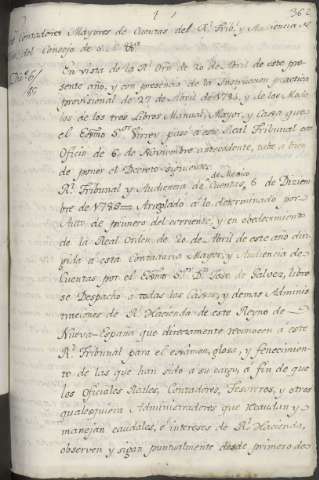 362
Contadores Mayores de Cuentas del Rl. Tribl. y Audiencia &
del Consejo de S. M. &a
Dice. 6/
En vista de la Rl. Orn. de 20 de Abril de este pre-
sente año, y con presencia de la Instruccion practica
provisional de 27 de Abril de 1784, y de los Mode-
los de los tres Libros Manual, Mayor, y Caxa que
el Exmo. Sor. Virrey paso á este Real Tribunal en
Oficio de 6 de Noviembre antecedente, tubo a bien
de poner el Decreto siguiente.
Rl. Tribunal y Audiencia de Cuentas de Mexico 6 de Diziem-
bre de 1785 Arreglado á lo determinado por
Auto de primero del corriente, y en obedecimiento
de la Real Orden de 20 de Abril de este año diri-
gida á esta Contaduria Mayor, y Audiencia de
Cuentas por el Exmo. Sor. Dn. Jose de Galvez, libre-
se Despacho á todas las Caxas, y demas Adminis-
traciones de Rl. Hacienda de este Reyno de
Nueva España que directamente reconocen a este
Rl. Tribunal para el examen, glosa, y fenecimien-
to de las que han sido á su cargo, á fin de que
los Oficiales Reales, Contadores, Tesoreros, y otros
qualesquiera Administradores que recaudan y
manejan caudales, é intereses de Rl. Hacienda,
observen y sigan puntualmente desde primero de